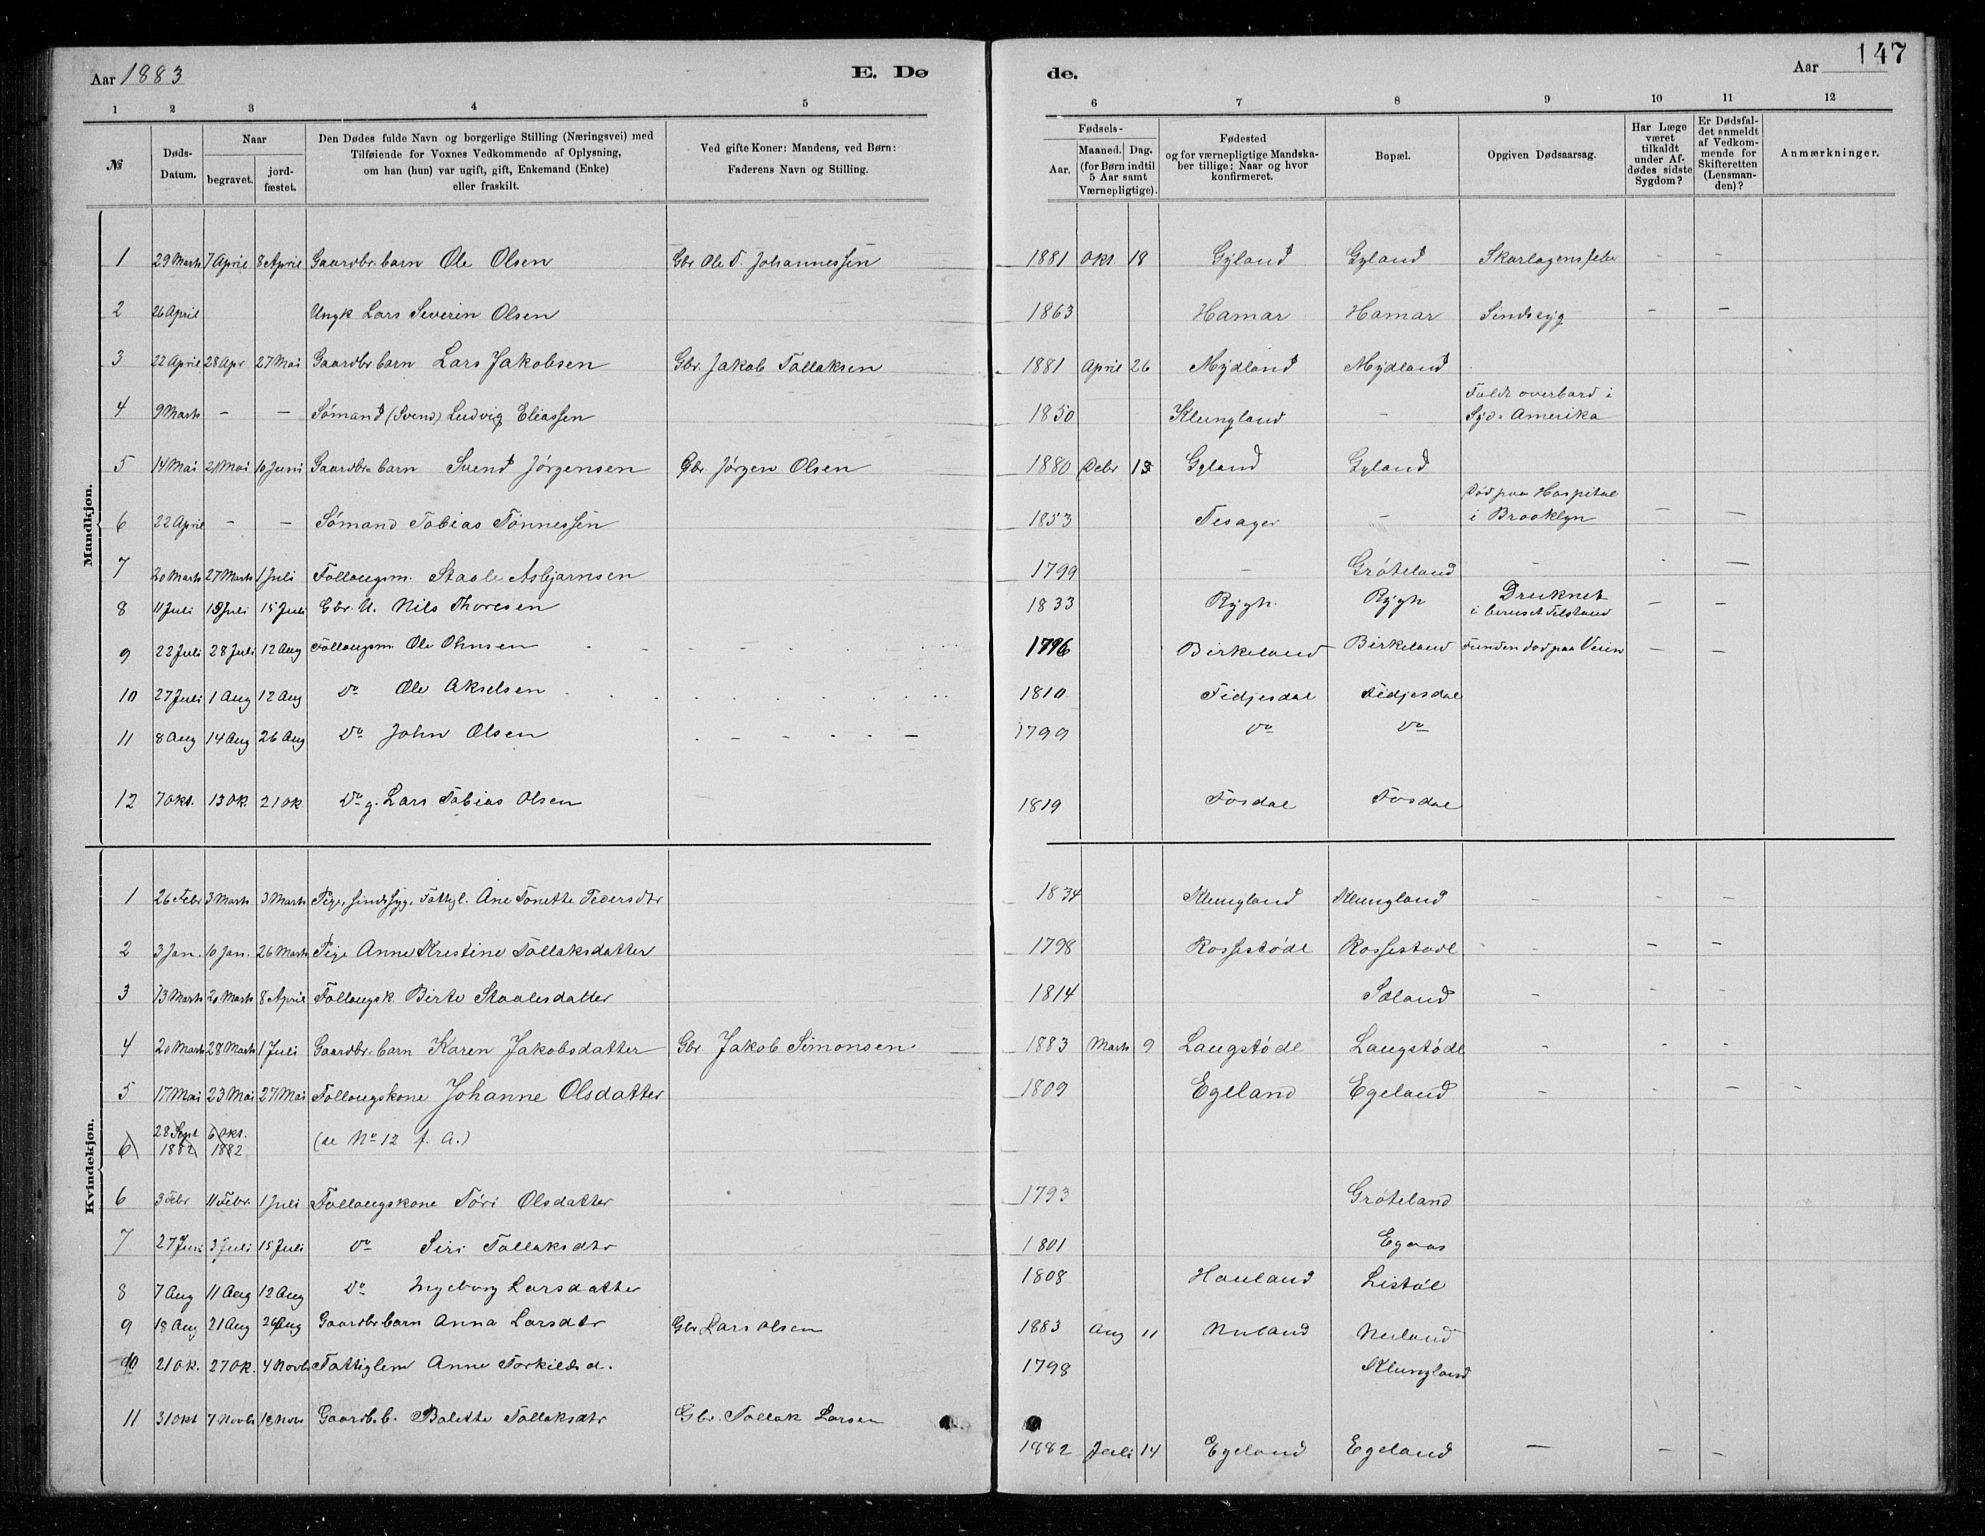 Aar 1883
E. Dø
de.
Aar
147
1 2 3 4 5
6 7 8 9 10 11 12
№
Døds-
Datum.
Naar
begravet.
jord-
fæstet.
Den Dødes fulde Navn og borgerlige Stilling (Næringsvei) med
Tilføiende for Voxnes Vedkommende af Oplysning,
om han (hun) var ugift, gift, Enkemand (Enke)
eller fraskilt.
Ved gifte Koner: Mandens, ved Børn:
Faderens Navn og Stilling.
Fødsels-
Aar.
Maaned.
Dag.
(for Børn indtil
5 Aar samt
Værnepligtige).
Fødested
og for værnepligtige Mandska-
ber tillige: Naar og hvor
konfirmeret.
Bopæl.
Opgiven Dødsaarsag.
Har Læge
været
tilkaldt
under Af-
dødes sidste
Sygdom?
Er Dødsfal-
det anmeldt
af Vedkom-
mende for
Skifteretten
(Lensman-
den)?
Anmærkninger.
Mandkjøn.
1 29 Marts 7 April 8 April Gaardbr. barn Ole Olsen Gbr Ole T. Johannessen 1881 Okt 18 Gyland Gyland Skarlagensfeber - -
2 26 April Ungk Lars Severin Olsen 1863 Hamar Hamar Sindssyg - -
3 22 April 28 Apr 27 Mai Gaardbr barn Lars Jakobsen Gbr. Jakob Tollaksen 1881 April 26 Mydland Mydland
4 9 Marts - - Sømand (Svend) Ludvig Eliassen 1850 Klungland - Faldt overbord i
Syd-Amerika
5 14 Mai 21 Mai 10 Juni Gaardbr barn Svend Jørgensen Gbr Jørgen Olsen 1880 Debr 13 Gyland Gyland
6 22 April - - Sømand Tobias Tønnessen 1853 Tesager - Død paa Hospital
i Brooklyn - -
7 20 Marts 27 Marts 1 Juli Follaugsm. Staale Asbjørnsen 1799 - Grøteland - - -
8 11 Juli 15 Juli 15 Juli Gbr. U. Nils Thoresen 1833 Rygh. Rygh Druknet
i beruset Tilstand - -
9 22 Juli 28 Juli 12 Aug Follaugsm. Ole Ohnsen 1796 Birkeland Birkeland Funden død paa Veien - -
10 27 Juli 1 Aug 12 Aug Do Ole Akselsen 1810 Fidjesdal Fidjesdal
11 8 Aug 14 Aug 26 Aug Do John Olsen 1799 Do Do
12 7 Okt. 13 Ok. 21 Ok Do g. Lars Tobias Olsen 1819 Fosdal Fosdal
Kvindekjøn.
1 26 Febr 3 Marts 3 Marts Pige, sindssyg, Fattigl. Ane Tonette Pedersdtr 1834 Klungland Klungland - - -
2 3 Jan. 10 Jan. 26 Marts Pige Anne Kristine Tollaksdatter 1798 Rossestødl Rossestødl - - -
3 13 Marts 20 Marts 8 April Follaugsk Birte Staalesdatter 1814 Sæland - - -
4 20 Marts 28 Marts 1 Juli Gaardbr. barn Karen Jakobsdatter Gbr. Jakob Simonsen 1883 Marts 9 Langstødl Langstødl - - -
5 17 Mai 23 Mai 27 Mai Follaugskone Johanne Olsdatter 1809 Egeland Egeland - - - -
6 28 Sept 1882 6 Okt. 1882 (se No 12 f. A.)
6 3 Febr 11 Febr. 1 Juli Follaugskone Tøri Olsdatter 1793 Grøteland
7 27 Juni 3 Juli 15 Juli Do Siri Tollaksdtr 1801 Egaas
8 7 Aug 11 Aug 12 Aug Do Ingeborg Larsdatter 1808 Hauland Listøl
9 18 Aug 21 Aug 26 Aug Gaardbr barn Anna Larsdtr Gbr Lars Olsen 1883 Aug 11 Nuland Nuland
10 21 Ok. 27 Ok. 4 Novb Fattiglem Anne Torkildsd. 1798 Klungland
11 31 Okt 7 Novbr 18 Nov Gaardb.b. Bolette Tollaksdtr Gbr. Tollak Larsen 1882 Juli 14 Egeland Egeland - - -